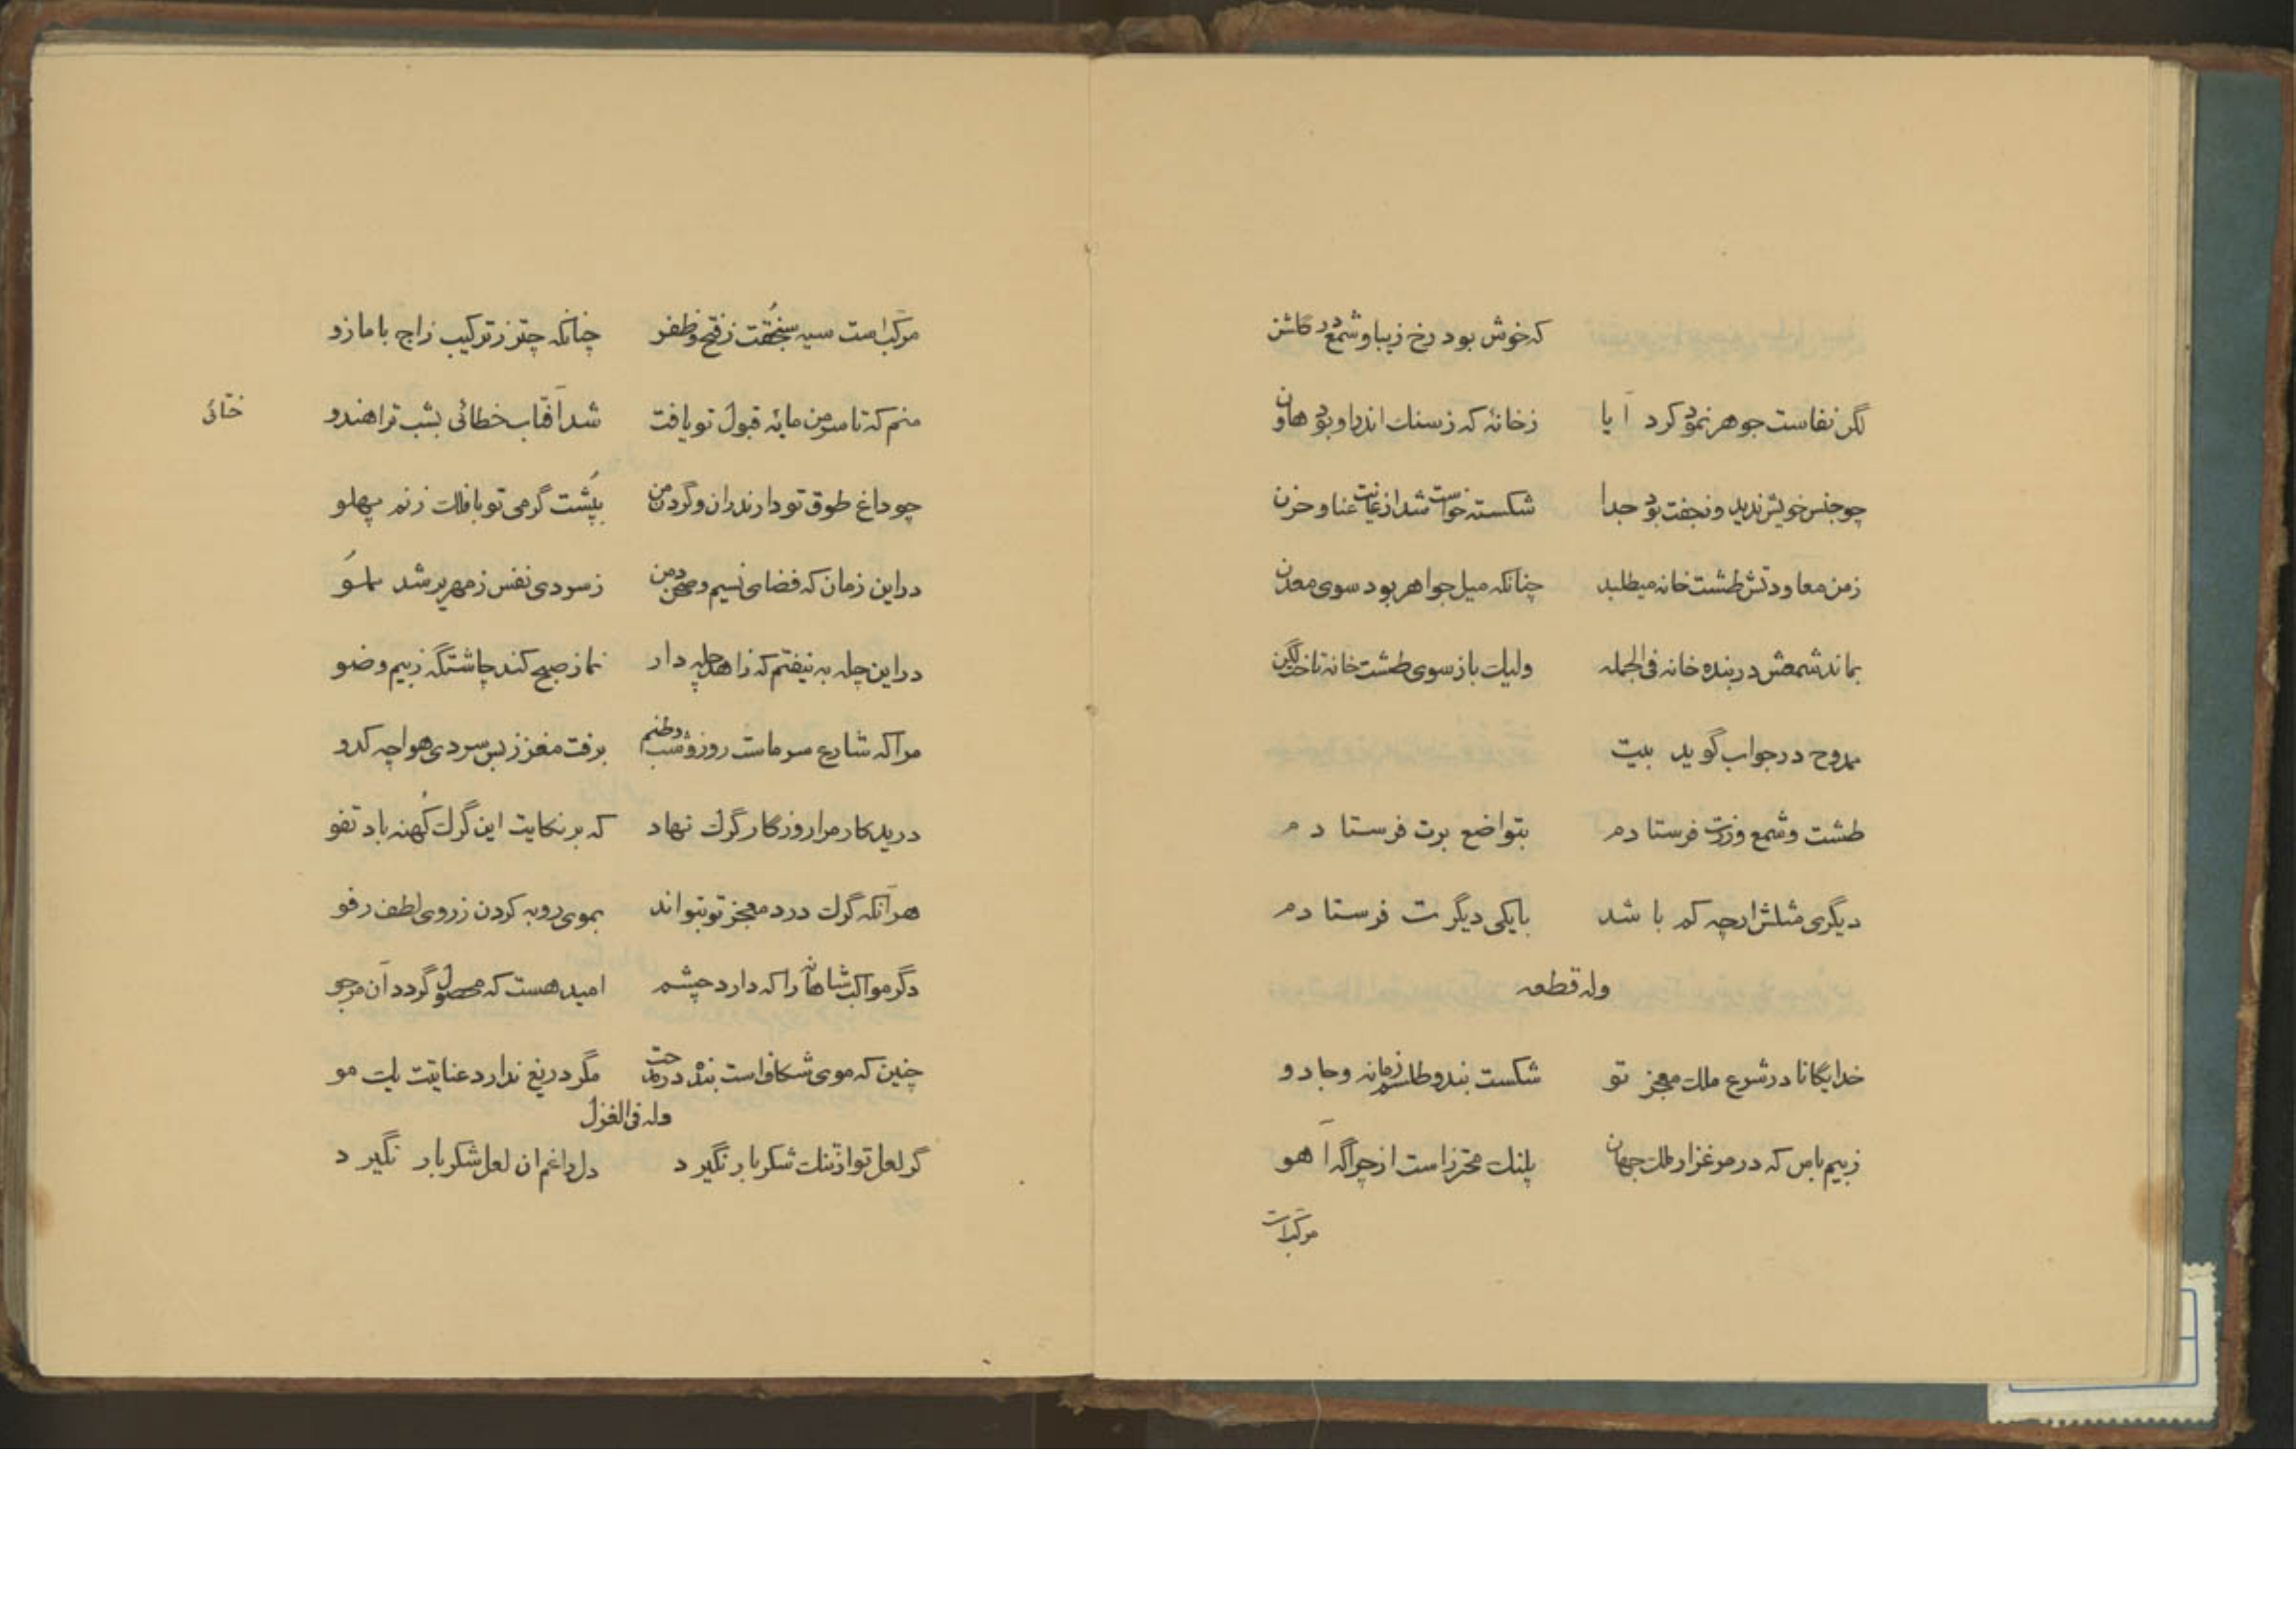 که خوش بود رخ زیبا و شمع در گلشن
لگن نفاست جوهر نمود کرد آیا زخانهٔ که زسنك اندر او بود هاون
چو جنس خویش ندید و نجفت بود جدا شکسته خواست شد از غایت عنا و حزن
زمن معاودتش طشت خانه میطلبد چنانکه میل جواهر بود سوی معدن
بماند شمعش در بنده خانه فی الجمله ولیك باز سوی طشت خانه تاخت لگن
ممدوح در جواب گوید بیت
طشت و شمع وزرت فرستادم بتواضع برت فرستادم
دیگری مثلش ارچه کم باشد بایکی دیگرت فرستادم
وله قطعه
خدایگانا در شرع ملك معجز تو شکست بند و طلسم زمانه و جادو
زبیم باس که در مرغزار ملك جهان پلنك محترز است از چراگه آهو
مرکبّ است
مرکبّ است سیه سنجقت ز فتح و ظفر چنانکه چتر ز ترکیب زاج با مازو
منم که تا سر من مایهٔ قبول تو یافت شد آفتاب خطائی بشب ترا هندو
ختائی
چو داغ طوق تو دارند ران و گردن من بپُشت گرمی تو با فلك زنم پهلو
در این زمان که فضای نسیم و صحن دمن زسردی نفس زمهریر شد مملوّ
در این چله به نیفتم که زاهد چله دار نماز صبح کند چاشتگه زبیم وضو
مرا که شارع سرماست روز و شب وطنم برفت مغز زبس سردی هوا چه کدو
درید کار مرا روزگار گرك نهاد که بر نکایت این گرك کُهنه باد تفو
هر آنکه گرك درد معجز تو بتواند بموی روبه کردن زروی لطف رفو
دگر مواکب شاهانه را که دارد چشم امید هست که محصول گردد آن مرجو
چنین که موی شکافست بنده در مدحت مگر دریغ ندارد عنایتت یك مو
وله فی الغزل
گر لعل تو از تنك شکر بار نگیرد دل داغم ان لعل شکر بار نگیرد